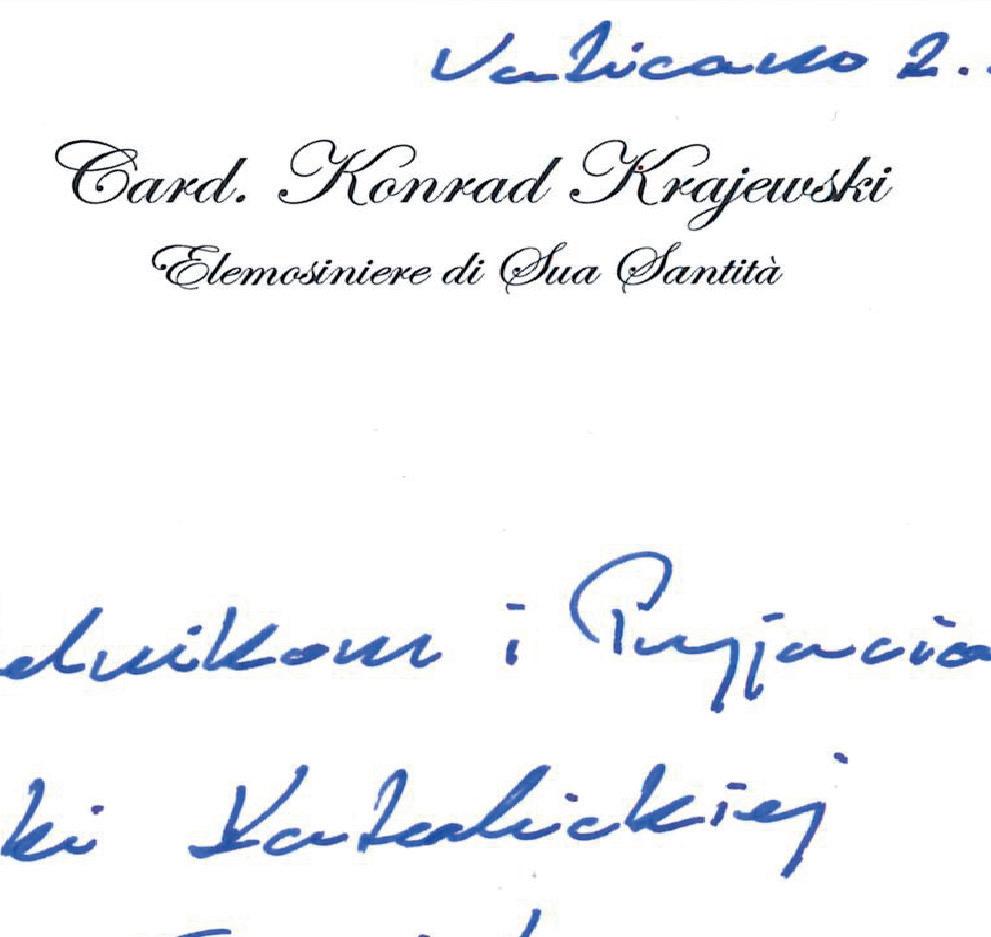 Vaticano 2.
Card. Konrad Krajewski
Elemosiniere di Sua Santità
dnikom i Przyjacio
ki Katolickiej